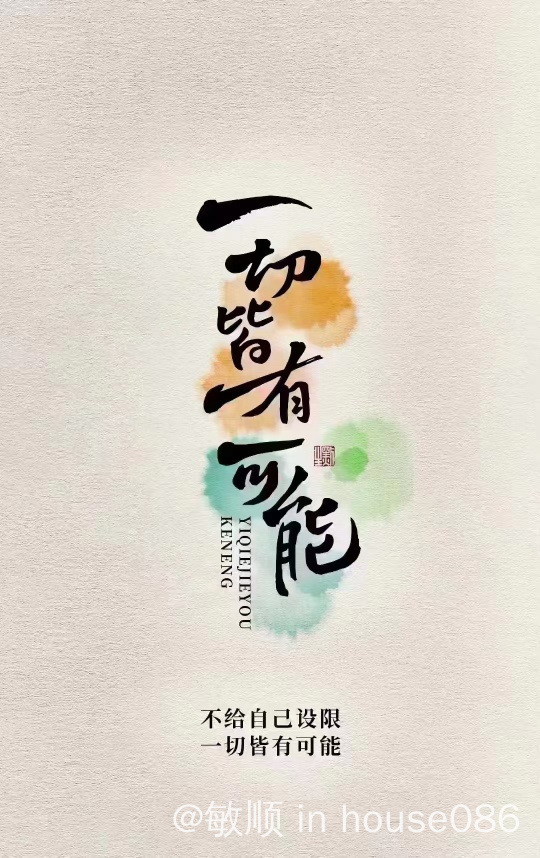 一切皆有可能
YIQIEJIEYOU
KENENG
不给自己设限
一切皆有可能
@敏顺 in house086